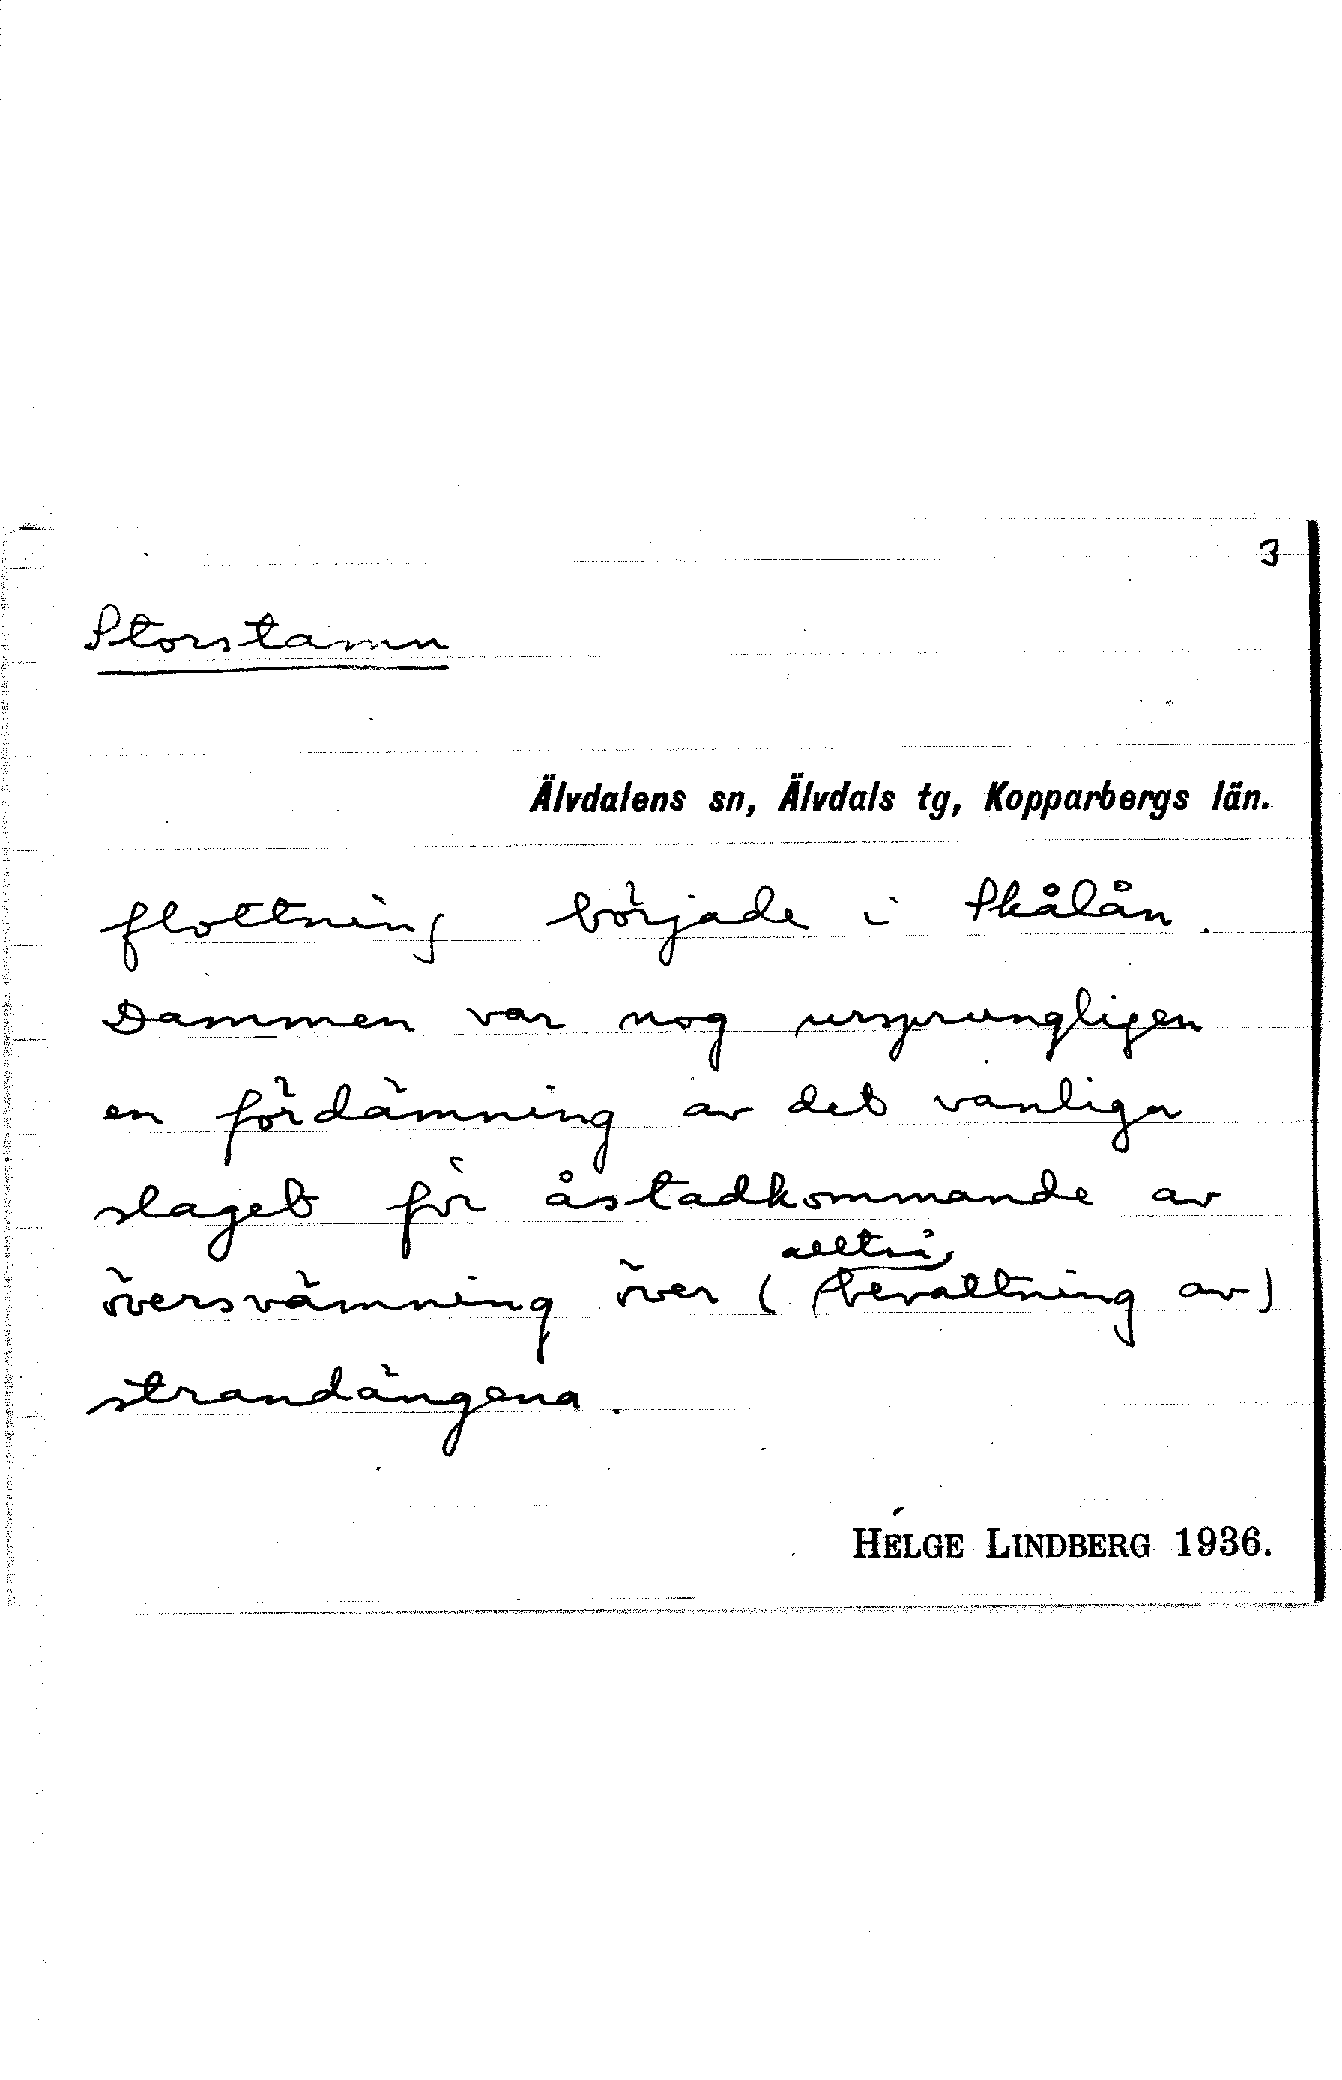 3
Storstamn
Älvdalens sn, Älvdals tg, Kopparbergs län.
flottning började i Skålån.
Dammen var nog ursprungligen
en fördämning av det vanliga
slaget för åstadkommande av
alltså
översvämning över (bevattning av)
strandängena.
HELGE LINDBERG 1936.